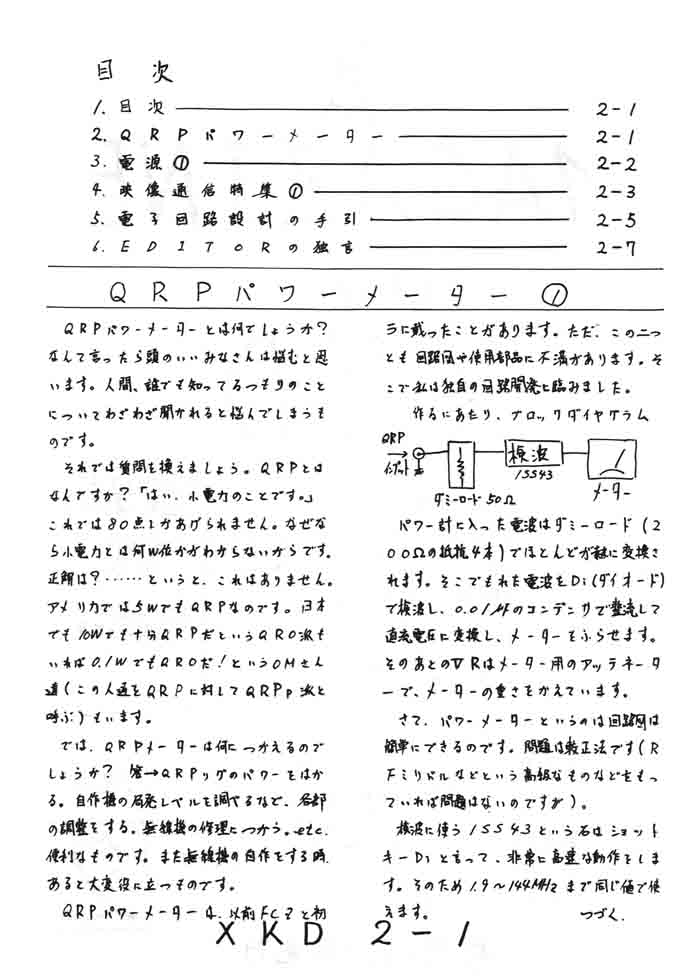 目次
1.目次 2-1
2.QRPパワーメーター 2-1
3.電源① 2-2
4.映像通信特集① 2-3
5.電子回路設計の手引 2-5
6.EDITORの独言 2-7
QRPパワーメーター①
QRPパワーメーターとは何でしょうか?
なんて言ったら頭のいいみなさんは悩むと思
います。人間、誰でも知ってるつもりのこと
についてわざわざ聞かれると悩んでしまうも
のです。
それでは質問を換えましょう。QRPとは
なんですか?「はい、小電力のことです。」
これでは80点しかあげられません。なぜな
ら小電力とは何W位かがわからないからです。
正解は?……というと、これはありません。
アメリカでは5WでもQRPなのです。日本
でも10Wでも十分QRPだというQRO派も
いれば0.1WでもQROだ!というOMさん
達(この人達をQRPに対してQRPp派と
呼ぶ)もいます。
では、QRPメーターは何につかえるので
しょうか? 答→QRPリグのパワーをはか
る。自作機の局発レベルを調べるなど、各部
の調整をする。無線機の修理につかう。etc.
便利なものです。また無線機の自作をする時、
あると大変役に立つものです。
QRPパワーメーターは、以前FCZと初
ラに載ったことがあります。ただ、この二つ
とも回路図や使用部品に不満があります。そ
こで私は独自の回路開発に臨みました。
作るにあたり、ブロックダイヤグラム
QRP
インプット
ダミーロード50Ω
検波
1SS43
メーター
パワー計に入った電波はダミーロード(2
00Ωの抵抗4本)でほとんどが熱に変換さ
れます。そこでもれた電波をDi(ダイオード)
で検波し、0.01μのコンデンサで整流して
直流電圧に変換し、メーターをふらせます。
そのあとのVRはメーター用のアッテネータ
ーで、メーターの重さをかえています。
さて、パワーメーターというのは回路図は
簡単にできるのです。問題は較正法です(R
Fミリバルなどという高級なものなどをもっ
ていれば問題はないのですが)。
検波に使う1SS43という石はショット
キーDiと言って、非常に高速な動作をしま
す。そのため1.9〜144MHzまで同じ値で使
えます。 つづく.
XKD 2-1